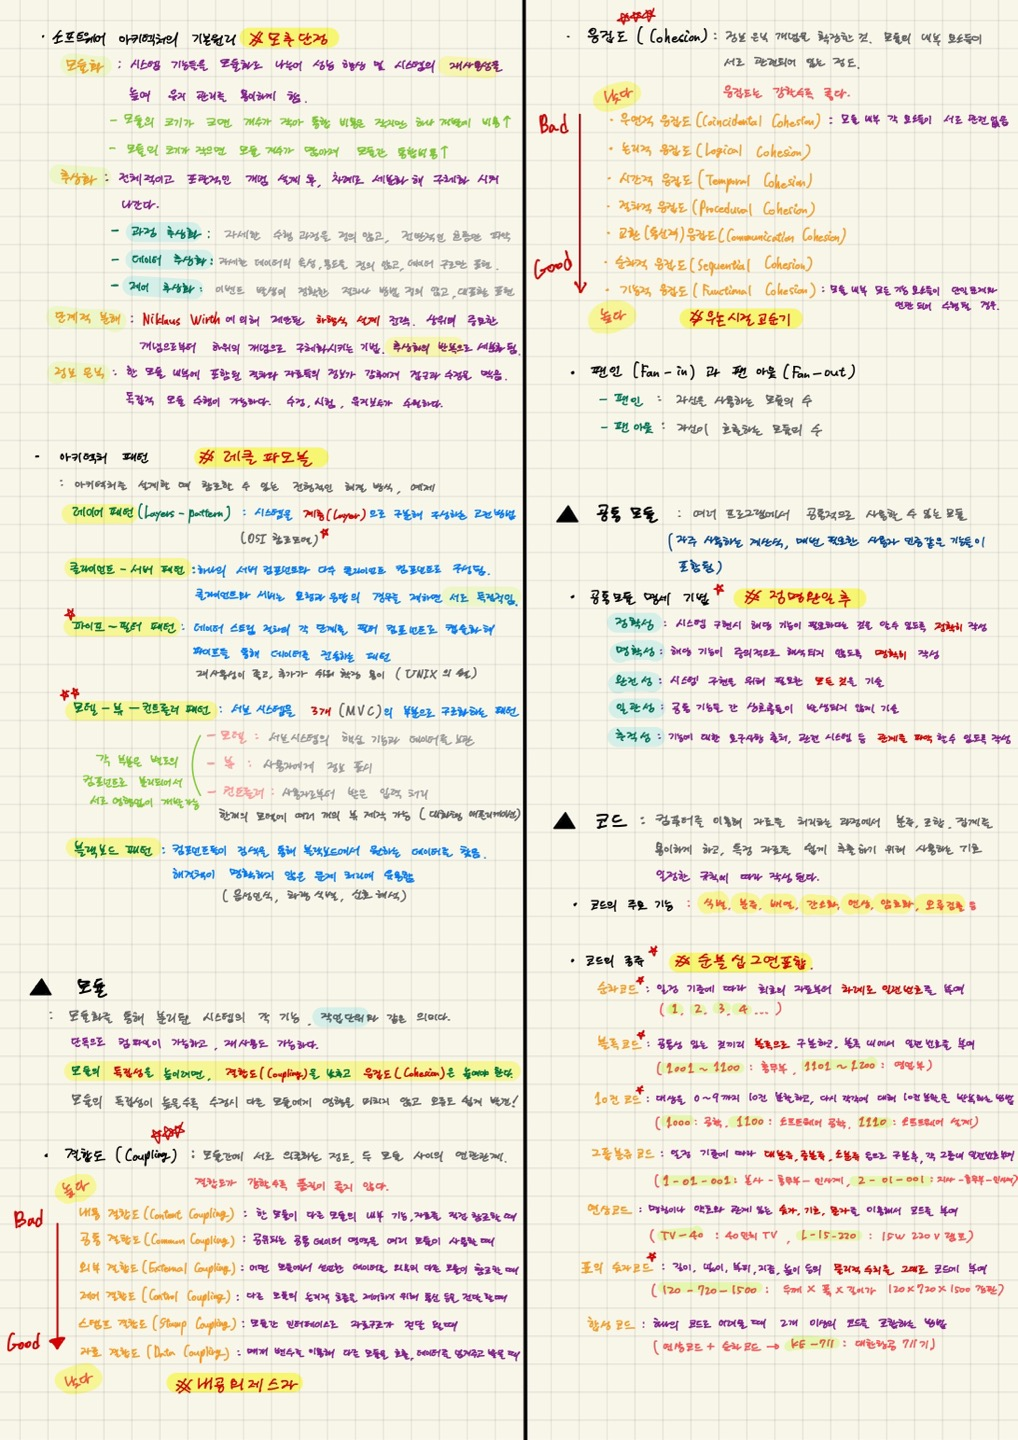 · 소프트웨어 아키텍처의 기본원리 ※ 모추단정
모듈화 : 시스템 기능들을 모듈화로 나누어 성능 향상 및 시스템의 재사용성을
높여 유지 관리를 용이하게 함.
- 모듈의 크기가 크면 개수가 적어 통합 비용은 적지만 하나 개발이 비용↑
- 모듈의 크기가 작으면 모듈 개수가 많아져 모듈간 통합비용↑
추상화 : 전체적이고 포괄적인 개념 설계 후, 차례로 세분화 해 구체화 시켜
나간다.
- 과정 추상화 : 자세한 수행 과정을 정의 않고, 전반적인 흐름만 파악
- 데이터 추상화 : 자세한 데이터의 속성, 용도를 정의 않고, 데이터 구조만 표현.
- 제어 추상화 : 이벤트 발생의 정확한 절차나 방법 정의 않고, 대표화 표현
단계적 분해 : Niklaus Wirth 에 의해 제안된 하향식 설계 전략. 상위의 중요한
개념으로부터 하위의 개념으로 구체화시키는 기법. 추상화의 반복으로 세분화 됨.
정보 은닉 : 한 모듈 내부에 포함된 절차와 자료들의 정보가 감추어져 접근과 수정을 막음.
독립적 모듈 수행이 가능하다. 수정, 시험, 유지보수가 수월하다.
· 아키텍처 패턴 ※ 레클 파모블
: 아키텍처를 설계할 때 참조할 수 있는 전형적인 해결 방식, 예제
레이어 패턴 (Layers-pattern) : 시스템을 계층(Layer)으로 구분해 구성하는 고전방법
(OSI 참조모델)
클라이언트-서버 패턴 : 하나의 서버 컴포넌트와 다수 클라이언트 컴포넌트로 구성됨.
클라이언트와 서버는 요청과 응답의 경우를 제하면 서로 독립적임.
파이프-필터 패턴 : 데이터 스트림 절차의 각 단계를 필터 컴포넌트로 캡슐화해
파이프를 통해 데이터를 전송하는 패턴
재사용성이 좋고, 추가가 쉬워 확장 용이 (UNIX의 쉘)
모델-뷰-컨트롤러 패턴 : 서브 시스템을 3개 (MVC)의 부분으로 구조화하는 패턴
각 부분은 별도의
컴포넌트로 분리되어서
서로 영향없이 개발가능
- 모델 : 서브시스템의 핵심 기능과 데이터를 보관
- 뷰 : 사용자에게 정보 표시
- 컨트롤러 : 사용자로부터 받은 입력 처리
한개의 모델에 여러 개의 뷰 제작 가능 (대화형 애플리케이션)
블랙보드 패턴 : 컴포넌트들이 검색을 통해 블랙보드에서 원하는 데이터를 찾음.
해결책이 명확하지 않은 문제 처리에 유용함
(음성인식, 차량 식별, 신호 해석)
▲ 모듈
: 모듈화를 통해 분리된 시스템의 각 기능, 작업단위와 같은 의미다.
단독으로 컴파일이 가능하고, 재사용도 가능하다.
모듈의 독립성을 높이려면, 결합도(Coupling)을 낮추고 응집도(Cohesion)은 높여야 한다.
모듈의 독립성이 높을수록 수정시 다른 모듈에게 영향을 미치지 않고 오류도 쉽게 발견!
· 결합도 (Coupling) : 모듈간에 서로 의존하는 정도, 두 모듈 사이의 연관관계.
높다 결합도가 강할수록 품질이 좋지 않다.
Bad
내용 결합도 (Content Coupling) : 한 모듈이 다른 모듈의 내부 기능, 자료를 직접 참조할 때
공통 결합도 (Common Coupling) : 공유되는 공통 데이터 영역을 여러 모듈이 사용할 때
외부 결합도 (External Coupling) : 어떤 모듈에서 선언한 데이터를 외부의 다른 모듈이 참조할 때
제어 결합도 (Control Coupling) : 다른 모듈의 논리적 흐름을 제어하기 위해 통신 등을 전달할 때
스탬프 결합도 (Stamp Coupling) : 모듈간 인터페이스로 자료구조가 전달 될 때
자료 결합도 (Data Coupling) : 매개 변수를 이용해 다른 모듈을 호출, 데이터를 넘겨주고 받을 때
Good
낮다 ※ 내공외제스자
· 응집도 (Cohesion) : 정보 은닉 개념을 확장한 것. 모듈의 내부 요소들이
서로 관련되어 있는 정도.
낮다 응집도는 강할수록 좋다.
Bad
· 우연적 응집도 (Coincidental Cohesion) : 모듈 내부 각 요소들이 서로 관련 없음
· 논리적 응집도 (Logical Cohesion)
· 시간적 응집도 (Temporal Cohesion)
· 절차적 응집도 (Procedural Cohesion)
· 교환 (통신적) 응집도 (Communication Cohesion)
· 순차적 응집도 (Sequential Cohesion)
· 기능적 응집도 (Functional Cohesion) : 모듈 내부 모든 기능 요소들이 단일 문제와
연관 되어 수행될 경우.
Good
높다 ※ 우논시절교순기
· 팬인 (Fan-in) 과 팬 아웃 (Fan-out)
- 팬인 : 자신을 사용하는 모듈의 수
- 팬 아웃 : 자신이 호출하는 모듈의 수
▲ 공통 모듈 : 여러 프로그램에서 공통적으로 사용할 수 있는 모듈
(자주 사용하는 계산식, 매번 필요한 사용자 인증같은 기능들이
포함됨)
· 공통모듈 명세 기법 ※ 정명완일추
정확성 : 시스템 구현시 해당 기능이 필요하다는 것을 알수 있도록 정확히 작성
명확성 : 해당 기능이 중의적으로 해석되지 않도록 명확히 작성
완전성 : 시스템 구현을 위해 필요한 모든 것을 기술
일관성 : 공통 기능들 간 상호충돌이 발생되지 않게 기술
추적성 : 기능에 대한 요구사항 출처, 관련 시스템 등 관계를 파악 할수 있도록 작성
▲ 코드 : 컴퓨터를 이용해 자료를 처리하는 과정에서 분류, 조합, 집계를
용이하게 하고, 특정 자료를 쉽게 추출하기 위해 사용하는 기호
일정한 규칙에 따라 작성 된다.
· 코드의 주요 기능 : 식별, 분류, 배열, 간소화, 연상, 암호화, 오류검출 등
· 코드의 종류 ※ 순블 십그연표합.
순차코드 : 일정 기준에 따라 최초의 자료부터 차례로 일련번호를 부여
(1, 2, 3, 4 ...)
블록코드 : 공통성 있는 것끼리 블록으로 구분하고, 블록 내에서 일련 번호를 부여
(1001 ~ 1100 : 총무부, 1101 ~ 1200 : 영업부)
10진 코드 : 대상을 0~9까지 10진 분할하고, 다시 각각에 대해 10진 분할을 반복하는 방법
(1000 : 공학, 1100 : 소프트웨어 공학, 1110 : 소프트웨어 설계)
그룹분류 코드 : 일정 기준에 따라 대분류, 중분류, 소분류 등으로 구분후, 각 그룹에 일련번호부여
(1-01-001 : 본사-총무부-인사계, 2-01-001 : 지사-총무부-인사계)
연상코드 : 명칭이나 약호와 관계 있는 숫자, 기호, 문자를 이용해서 코드를 부여
(TV-40 : 40인치 TV, L-15-220 : 15W 220V 램프)
표의 숫자코드 : 길이, 넓이, 부피, 지름, 높이 등의 물리적 수치를 그대로 코드에 부여
(120 - 720 - 1500 : 두께 × 폭 × 길이가 120×720×1500 강판)
합성 코드 : 하나의 코드로 어려울 때 2개 이상의 코드를 조합하는 방법
(연상코드 + 순차코드 → KE-711 : 대한항공 711기)